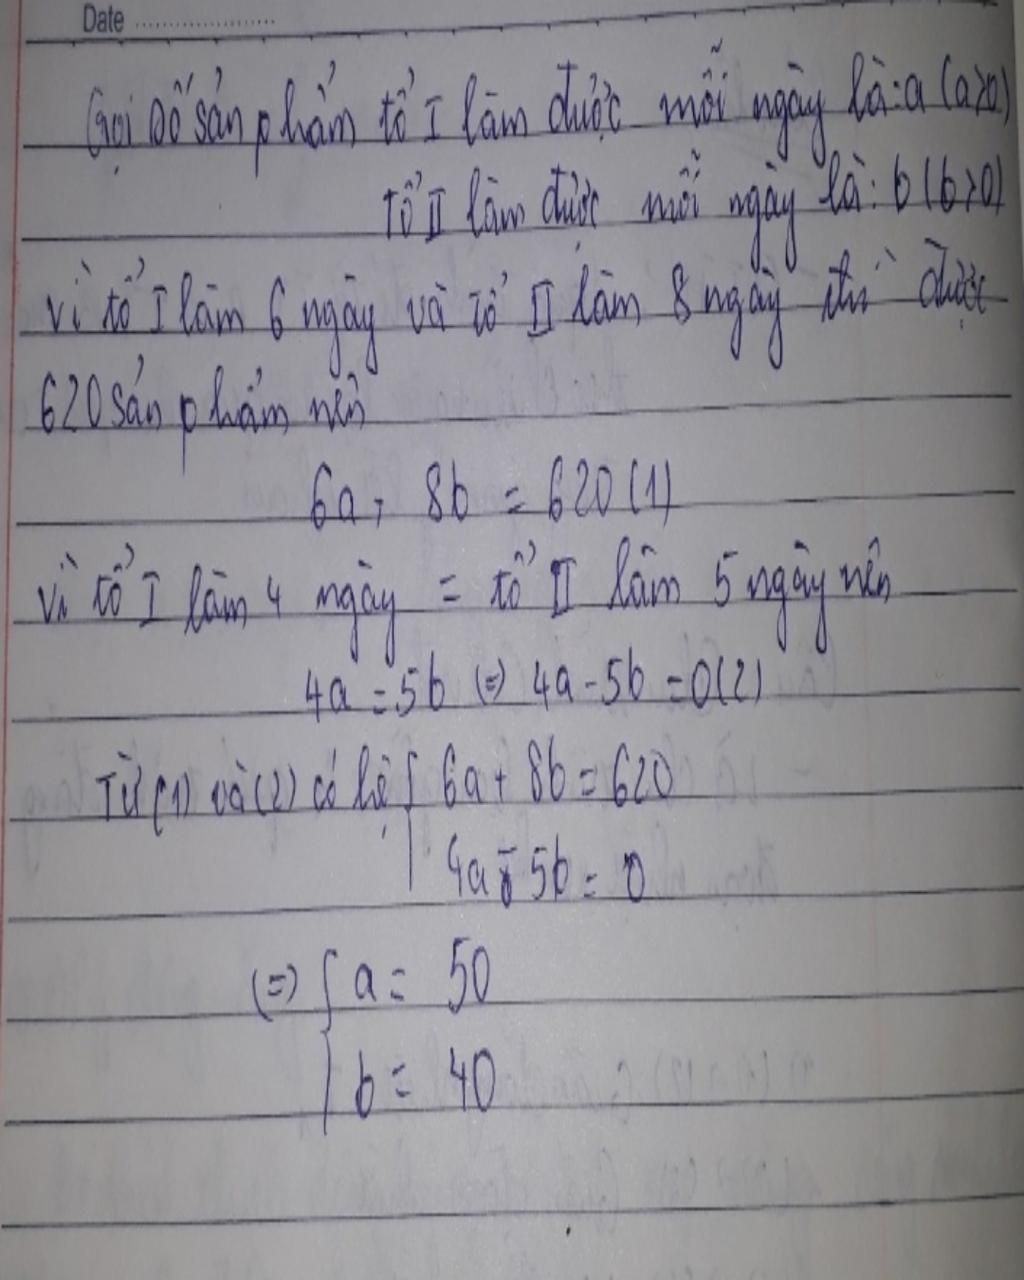 Date ....................
Gọi số sản phẩm tổ I làm được mỗi ngày là: a (a>0)
tổ II làm được mỗi ngày là: b (b>0)
vì tổ I làm 6 ngày và tổ II làm 8 ngày thì được
620 sản phẩm nên
6a + 8b = 620 (1)
vì tổ I làm 4 ngày = tổ II làm 5 ngày nên
4a = 5b (=) 4a - 5b = 0 (2)
Từ (1) và (2) có hệ { 6a + 8b = 620
4a - 5b = 0
(=) { a = 50
b = 40